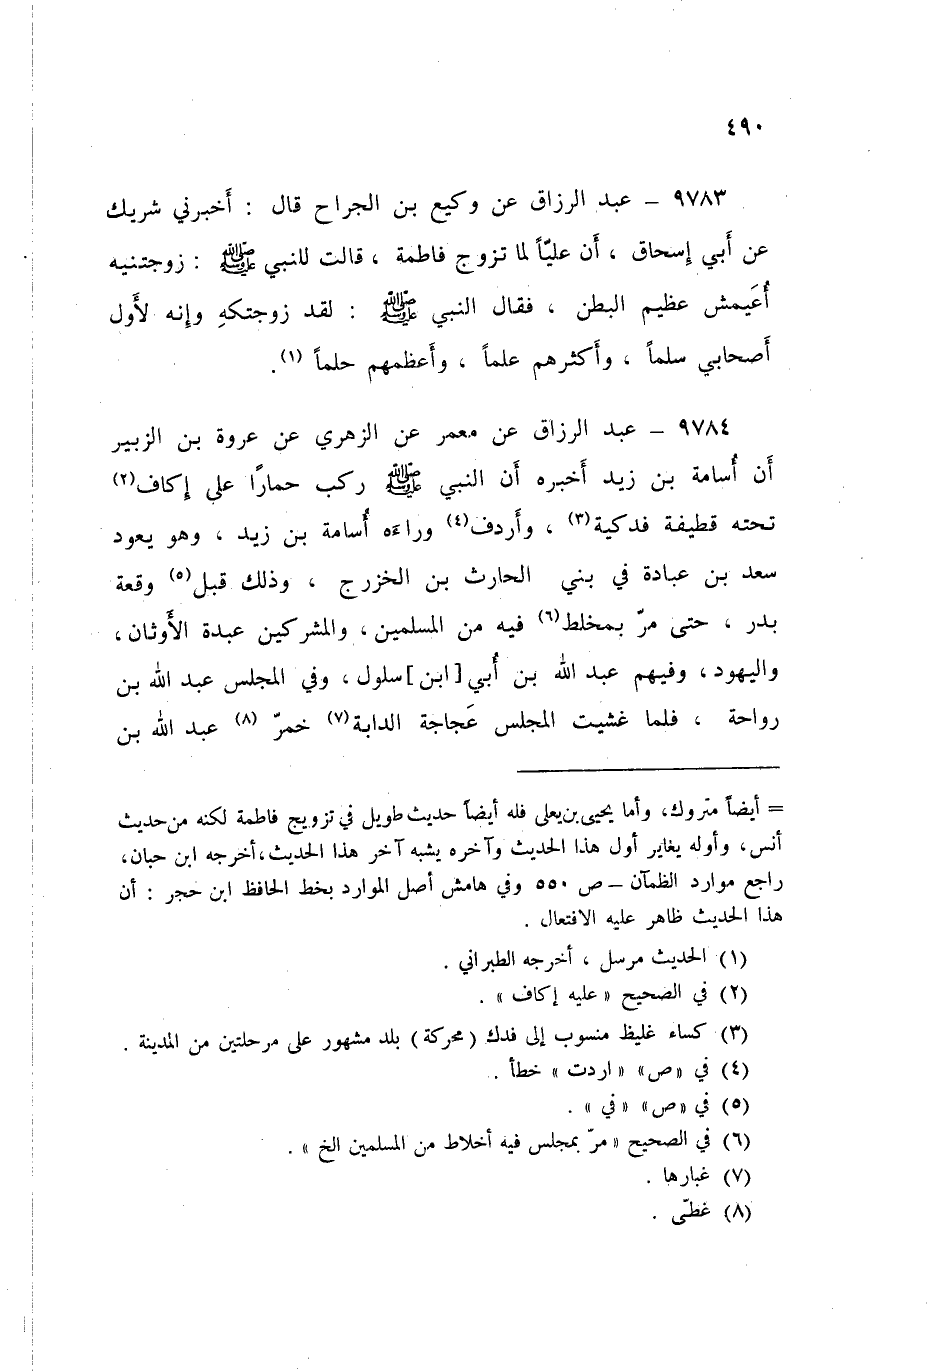 ٤٩٠
٩٧٨٣ – عبد الرزاق عن وكيع بن الجراح قال : أَخبرني شريك
عن أَبي إسحاق ، أَن عليّاً لما تزوج فاطمة ، قالت للنبي ﷺ : زوجتنيه
أُعَيمش عظيم البطن ، فقال النبي ﷺ : لقد زوجتكهِ وإنه لأَول
أَصحابي سلماً ، وأَكثرهم علماً ، وأَعظمهم حلماً (١).
٩٧٨٤ – عبد الرزاق عن معمر عن الزهري عن عروة بن الزبير
أَن أُسامة بن زيد أَخبره أَن النبي ﷺ ركب حمارًا على إكاف(٢)
تحته قطيفة فدكية(٣) ، وأَردف(٤) وراءه أُسامة بن زيد ، وهو يعود
سعد بن عبادة في بني الحارث بن الخزرج ، وذلك قبل(٥) وقعة
بدر ، حتى مرّ بمخلط(٦) فيه من المسلمين ، والمشركين عبدة الأَوثان ،
واليهود ، وفيهم عبد الله بن أُبي [ابن] سلول ، وفي المجلس عبد الله بن
رواحة ، فلما غشيت المجلس عَجاجة الدابة(٧) خمرّ (٨) عبد الله بن
= أيضاً متروك، وأما يحيى بن يعلى فله أيضاً حديث طويل في تزويج فاطمة لكنه من حديث
أنس، وأوله يغاير أول هذا الحديث وآخره يشبه آخر هذا الحديث، أخرجه ابن حبان،
راجع موارد الظمآن – ص ٥٥٠ وفي هامش أصل الموارد بخط الحافظ ابن حجر : أن
هذا الحديث ظاهر عليه الافتعال .
(١) الحديث مرسل ، أخرجه الطبراني .
(٢) في الصحيح « عليه إكاف » .
(٣) كساء غليظ منسوب إلى فدك (محركة) بلد مشهور على مرحلتين من المدينة .
(٤) في «ص» « اردت » خطأ .
(٥) في «ص» «في » .
(٦) في الصحيح « مرّ بمجلس فيه أخلاط من المسلمين الخ » .
(٧) غبارها .
(٨) غطّى .